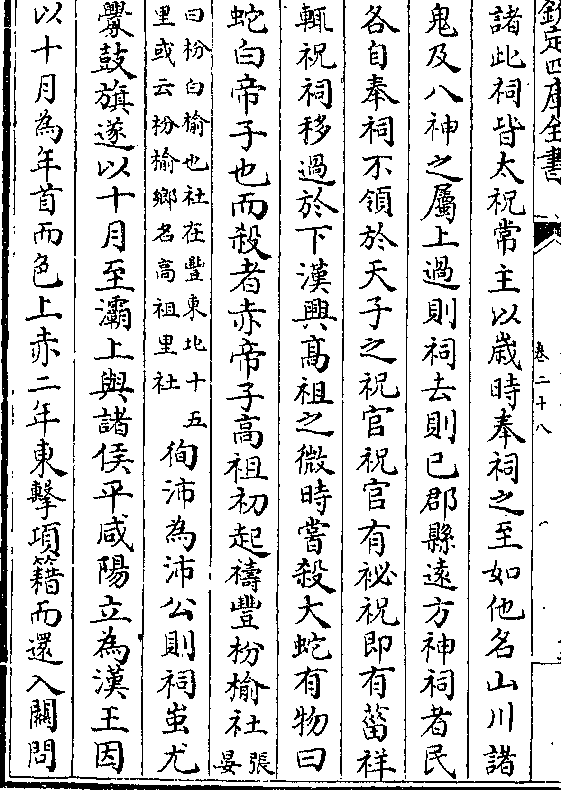 欽定四庫全書
卷二十八
諸此祠皆太祝常主以歳時奉祠之至如他名山川諸
鬼及八神之屬上過則祠去則已郡縣遠方神祠者民
各自奉祠不領於天子之祝官祝官有祕祝即有菑祥
輒祝祠移過於下漢興髙祖之微時嘗殺大蛇有物曰
蛇白帝子也而殺者赤帝子高祖初起禱豐枌榆社張晏
曰枌白榆也社在豐東北十五
里或云枌榆鄉名高祖里社
徇沛為沛公則祠蚩尤
釁鼓旗遂以十月至灞上與諸侯平咸陽立為漢王因
以十月為年首而色上赤二年東擊項籍而還入關問